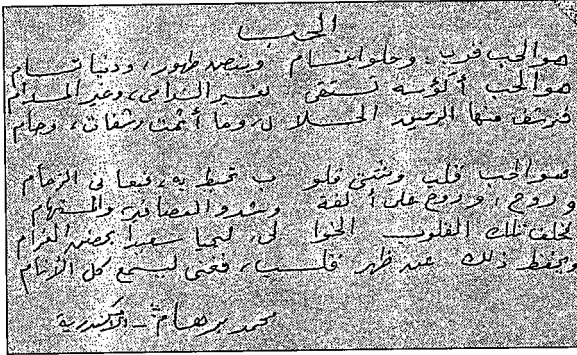 الحب
هو الحب قرب، وحلو ابتسام وبعد طهور، ودنيا تسام
هو الحب أكؤسه تستقى لغير الندامى، وغير المدام
فنرشف منها الرحيق الحلا ل، وما أثمت رشفات، وجام
هو الحب قلب وشتى قلو ب تحط به، في الزحام
وروح، وروح على ألفة وشدو العصافير والمستهام
تلك القلوب الخوا لى، بحضن الغرام
ويحفظ ذلك عند طهر قلب، فغنى ليسمع كل الأنام
محمد برهام - الإسكندرية